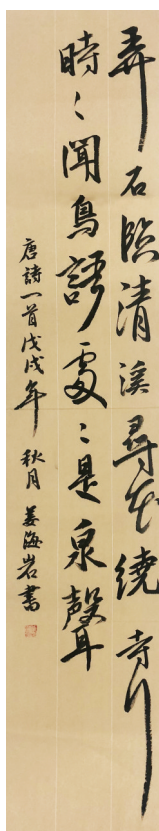 弄石臨清溪尋花繞寺行
時〻聞鳥語處〻是泉聲
唐詩一首戊戌年 秋月 姜海岩書